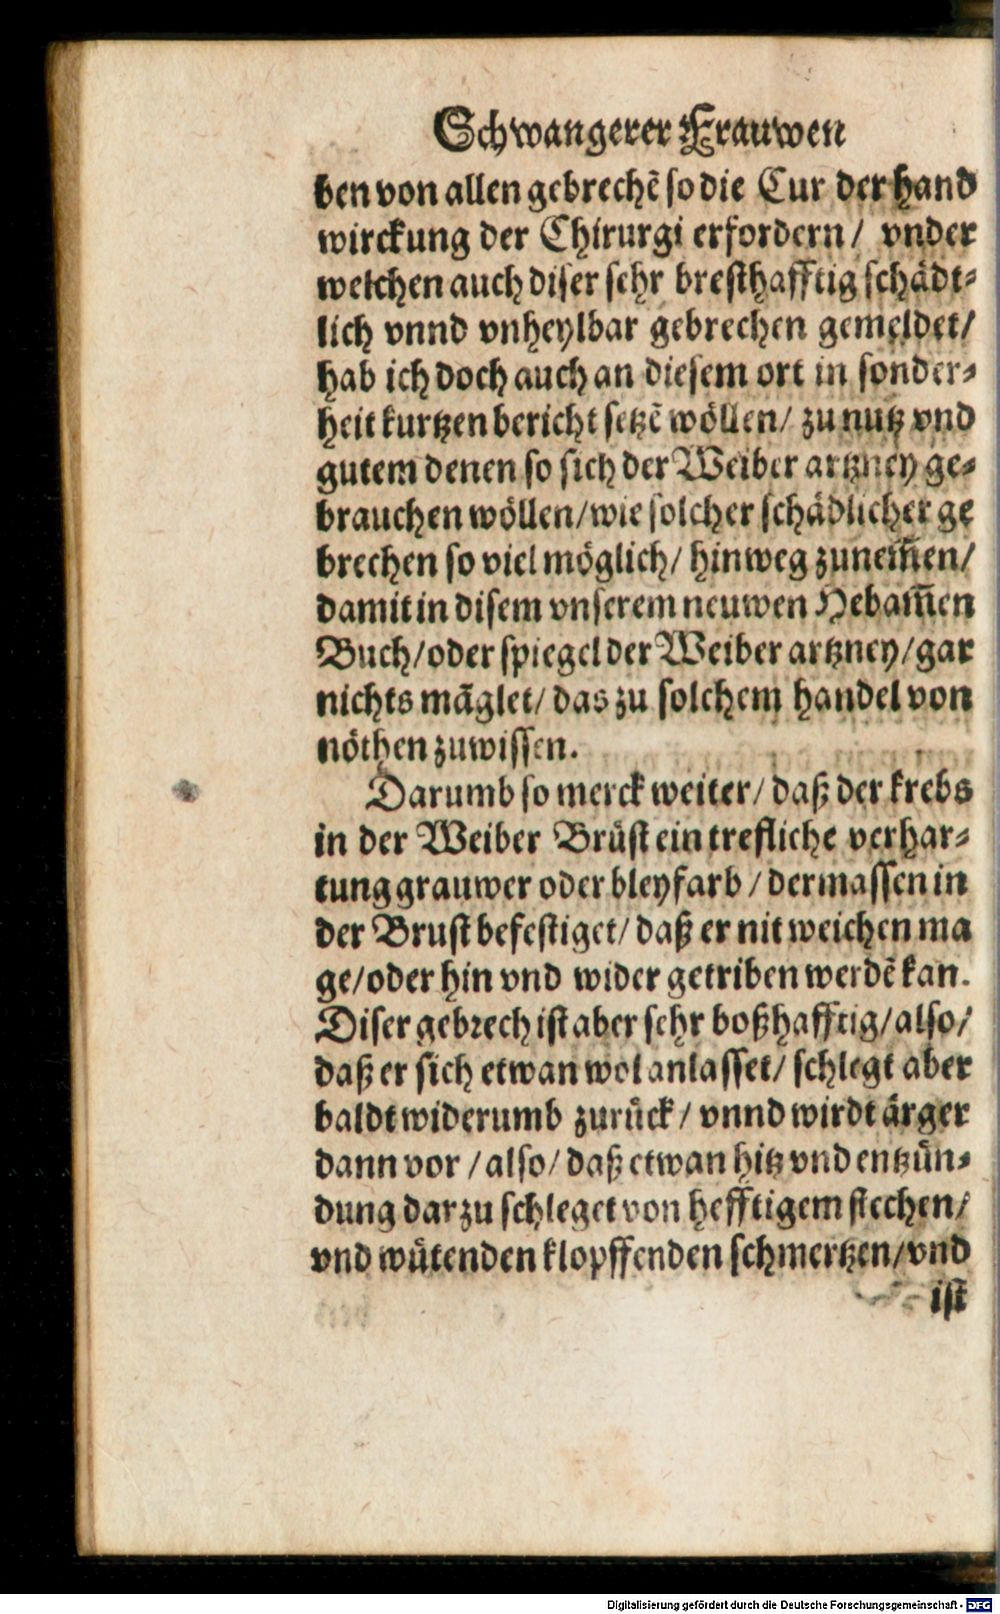 Schwangerer Frauwen
ben von allen gebrechẽ so die Cur der hand
wirckung der Chirurgi erfordern / vnder
welchen auch diser sehr bresthafftig schädt-
lich vnnd vnheylbar gebrechen gemeldet/
hab ich doch auch an diesem ort in sonder-
heit kurtzen bericht setzẽ wöllen/ zu nutz vnd
gutem denen so sich der Weiber artzney ge-
brauchen wöllen/wie solcher schädlicher ge
brechen so viel möglich/ hinweg zunem̃en/
damit in disem vnserem neuwen Hebam̃en
Buch/oder spiegel der Weiber artzney/gar
nichts mãglet/ das zu solchem handel von
nöthen zuwissen.
Darumb so merck weiter/ daß der krebs
in der Weiber Brüst ein trefliche verhar-
tung grauwer oder bleyfarb / dermassen in
der Brust befestiget/ daß er nit weichen ma
ge/oder hin vnd wider getriben werdẽ kan.
Diser gebrech ist aber sehr boßhafftig/also/
daß er sich etwan wol anlasset/ schlegt aber
baldt widerumb zurück / vnnd wirdt ärger
dann vor / also/ daß etwan hitz vnd entzün-
dung darzu schleget von hefftigem stechen/
vnd wütenden klopffenden schmertzen/vnd
ist
Digitalisierung gefördert durch die Deutsche Forschungsgemeinschaft - DFG